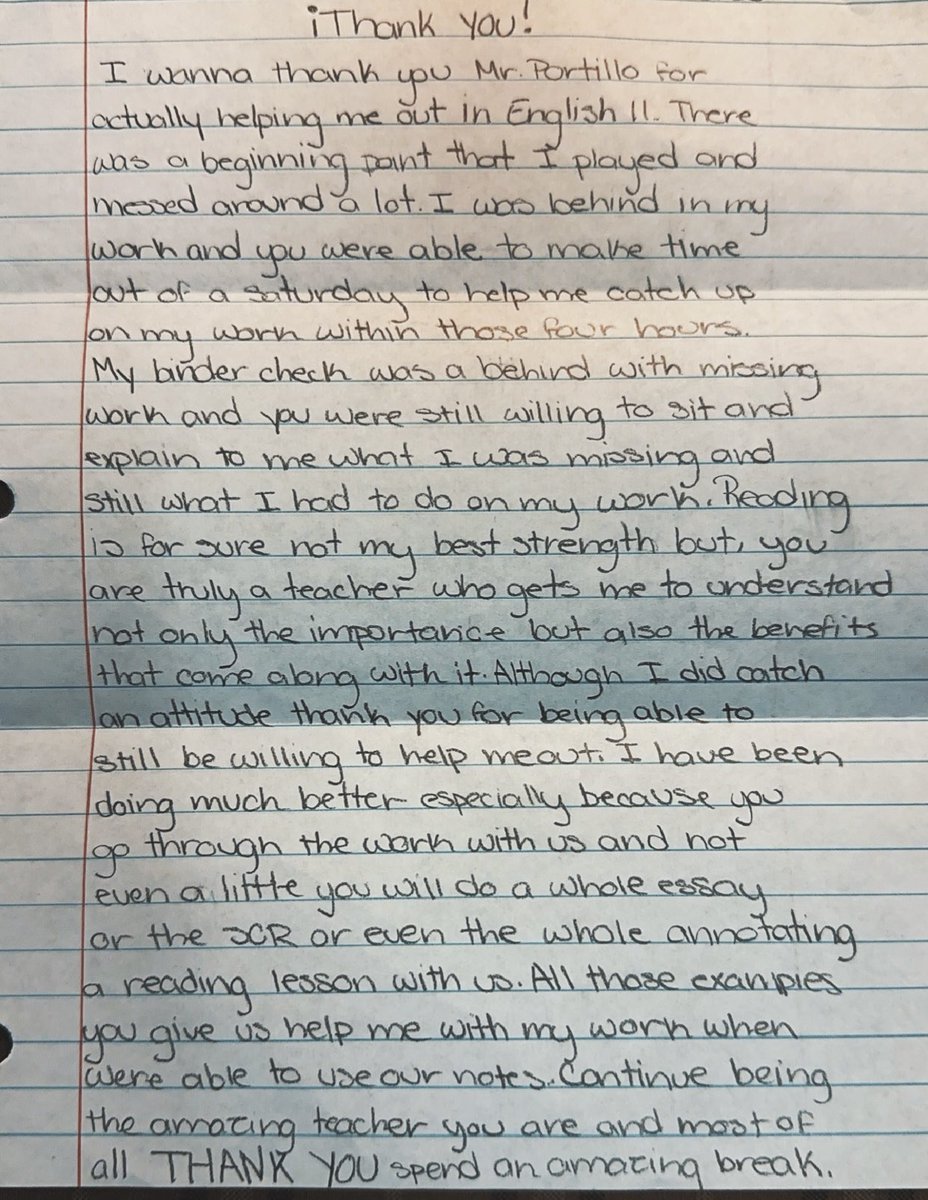 ¡Thank you!
I wanna thank you Mr. Portillo for
actually helping me out in English II. There
was a beginning point that I played and
messed around a lot. I was behind in my
work and you were able to make time
out of a saturday to help me catch up
on my work within those four hours.
My binder check was a behind with missing
work and you were still willing to sit and
explain to me what I was missing and
still what I had to do on my work. Reading
is for sure not my best strength but, you
are truly a teacher who gets me to understand
not only the importance but also the benefits
that come along with it. Although I did catch
an attitude thank you for being able to
still be willing to help me out. I have been
doing much better especially because you
go through the work with us and not
even a little you will do a whole essay
or the SCR or even the whole annotating
a reading lesson with us. All those examples
you give us help me with my work when
were able to use our notes. Continue being
the amazing teacher you are and most of
all THANK YOU spend an amazing break.